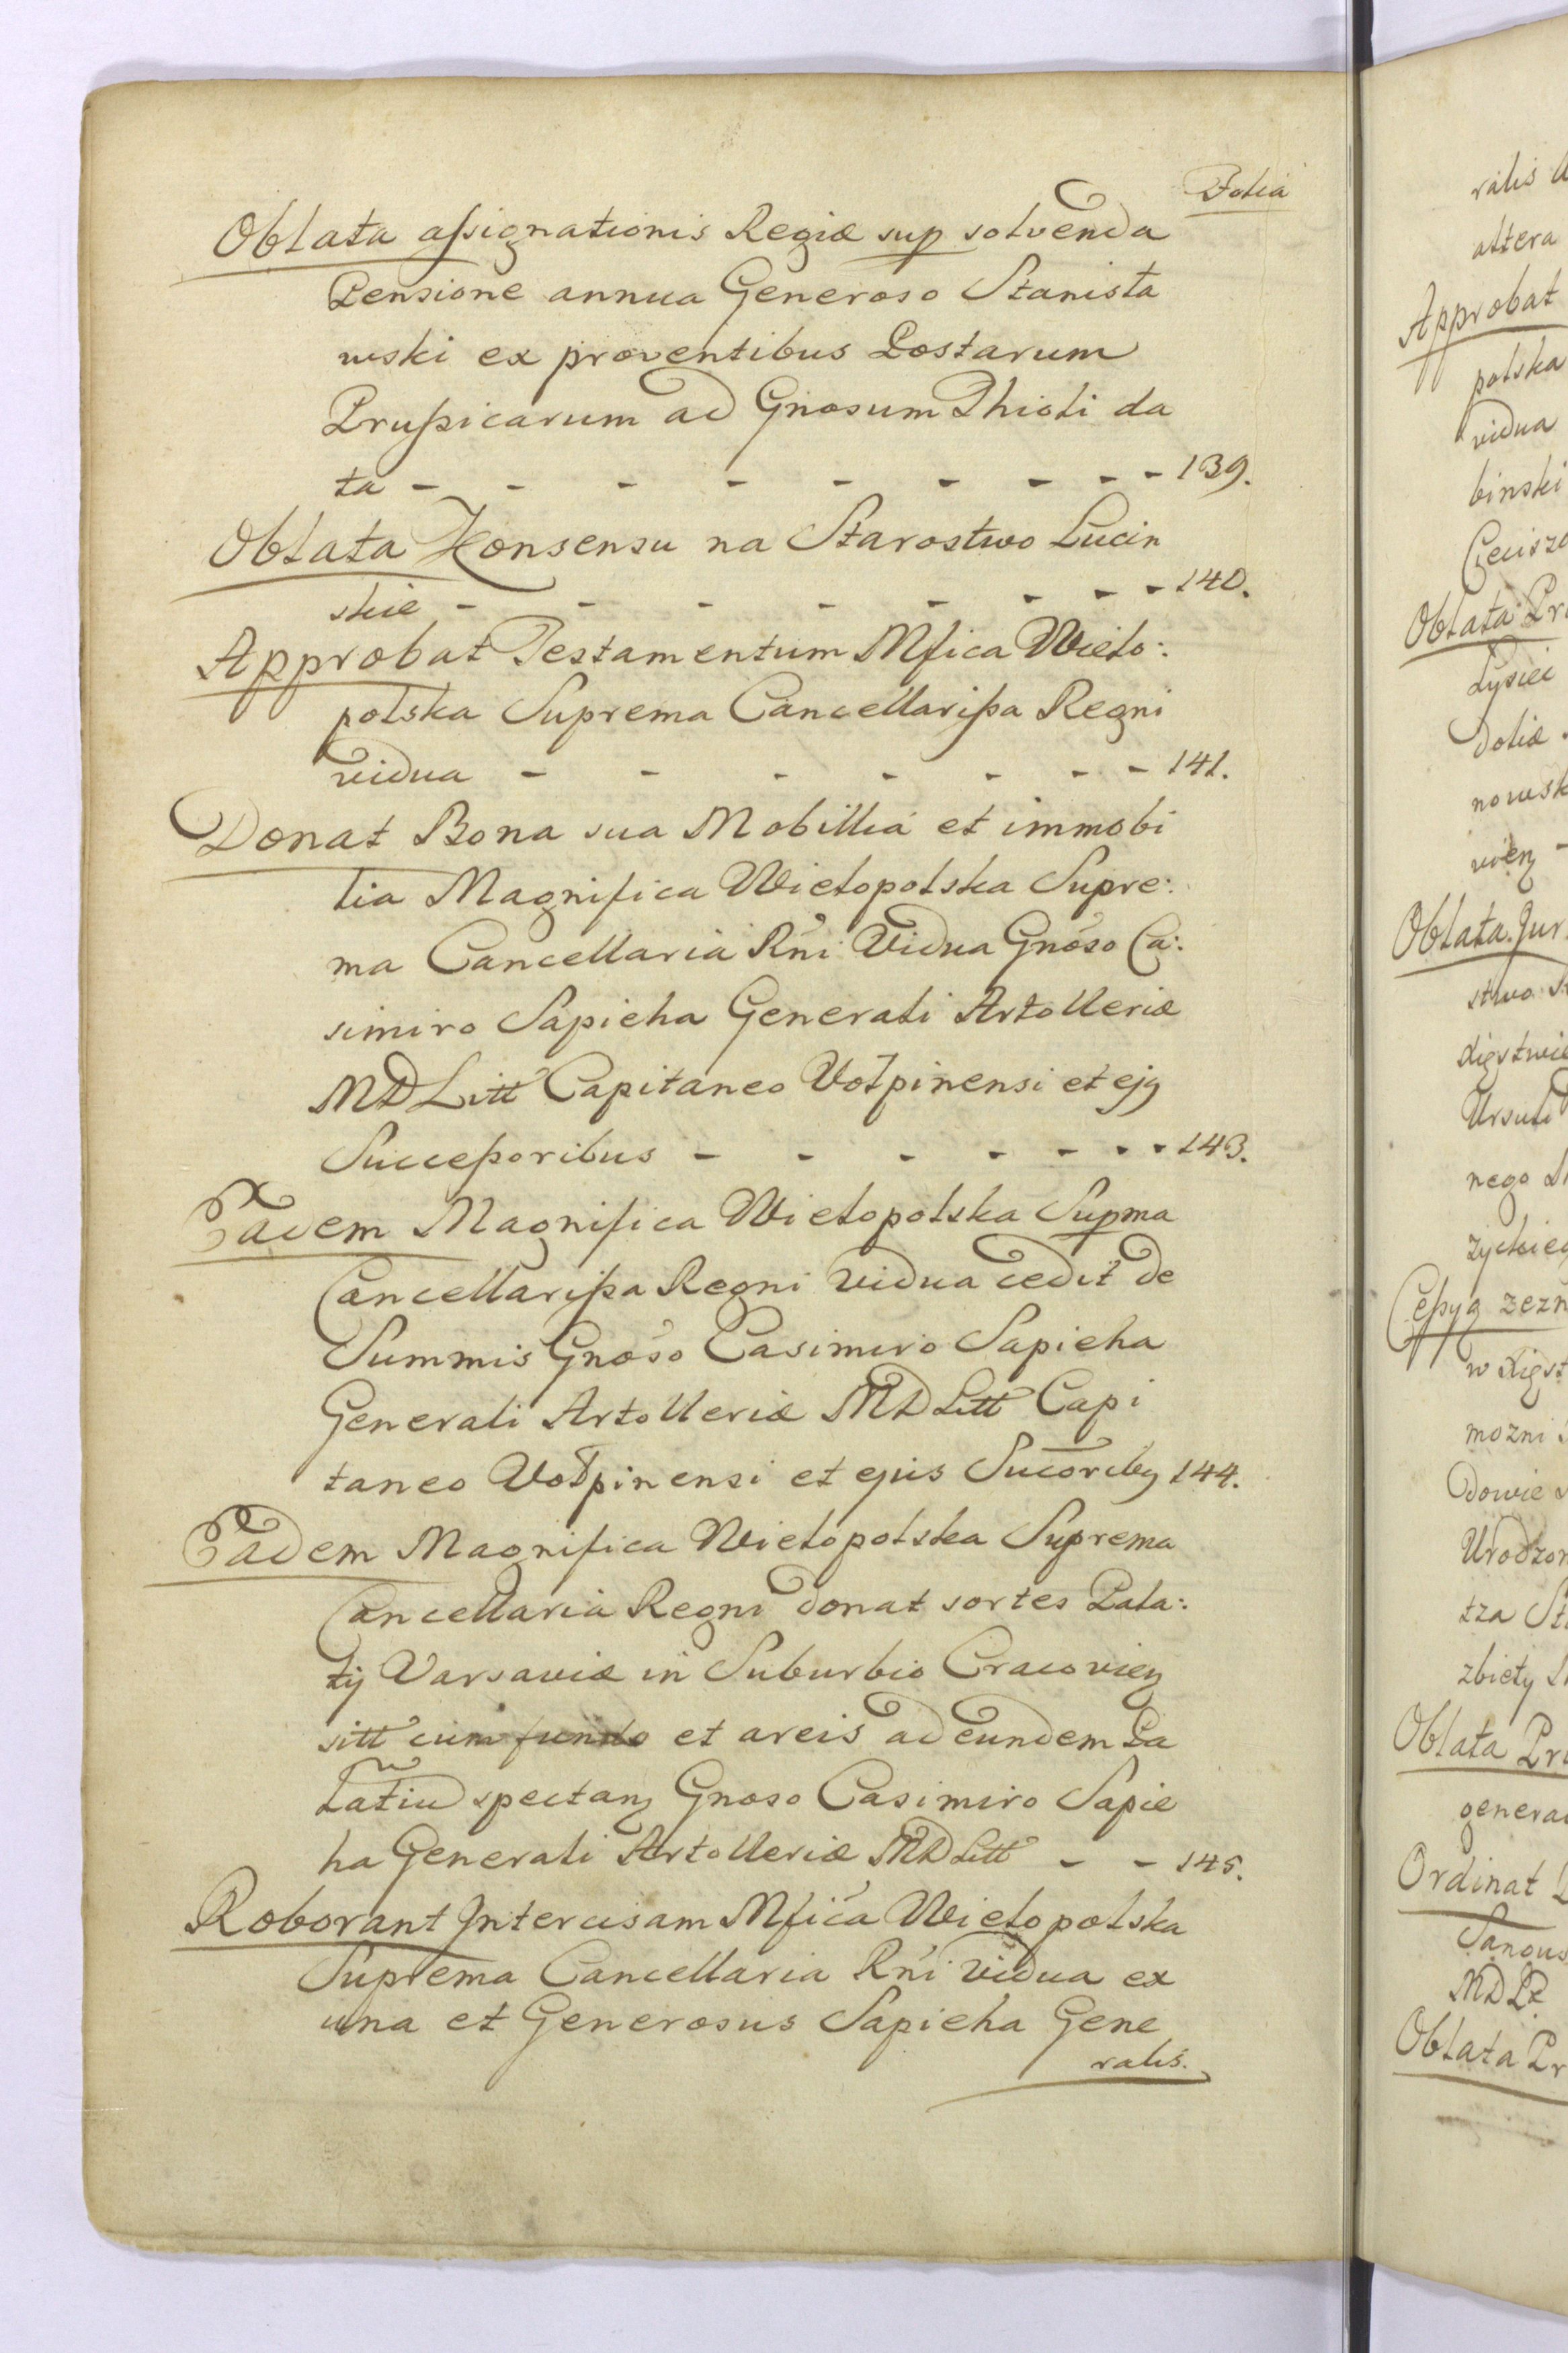 Folia
Oblata aßignationis Regiæ sup solvenda
Pensione annua Generoso Stanisła
wski ex proventibus Postarum
Prußicarum ad Gnosum Thioli da
ta - - - - - - - - - 139.
Oblata Konsensu na Starostwo Lucin
skie - - - - - - - - 140.
Approbat Testamentum Mfica Wielo:
polska Suprema Cancellarißa Regni
vidua - - - - - - - 141.
Donat Bona sua Mobillia et immobi
lia Magnifica Wielopolska Supre:
ma Cancellaria Rni Vidua Gnoso Ca:
simiro Sapieha Generali Artolleriæ
MDLitt Capitaneo Wołpinensi et ejq
Succeßoribus - - - - - - - 143.
Eadem Magnifica Wielopolska Supma
Cancellarißa Regni Vidua cedit de
Summis Gnoso Casimiro Sapieha
Generali Artolleriæ MDLitt Capi
taneo Wołpinensi et ejus Sucoribq 144.
Eadem Magnifica Wielopolska Suprema
Cancellaria Regni donat sortes Pala:
tij Varsaviæ in Suburbio Cracovien
sitt cum fundo et areis ad eundem Pa
latiu spectan Gnoso Casimiro Sapie
ha Generali Artolleriæ MDLitt - - 145.
Roborant Intercisam Mfica Wielopolska
Suprema Cancellaria Rni vidua ex
una et Generosus Sapieha Gene
ralis.
ralis
altera
Approbat
polska
vidua
binski
Oblata
nowsk
Oblata Jur
stwo
Xięstwie
nego
zezn
w Xięst
mozni
dowie
tza
zbiety
Oblata
genera
Ordinat
MD
Oblata